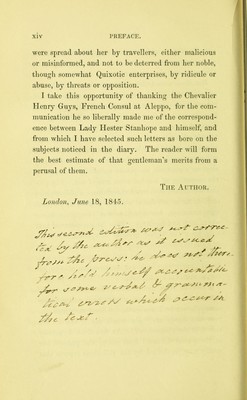 xiv PREFACE.
were spread about her by travellers, either malicious
or misinformed, and not to be deterred from her noble,
though somewhat Quixotic enterprises, by ridicule or
abuse, by threats or opposition.
I take this opportunity of thanking the Chevalier
Henry Guys, French Consul at Aleppo, for the com-
munication he so liberally made me of the correspond-
ence between Lady Hester Stanhope and himself, and
from which I have selected such letters as bore on the
subjects noticed in the diary. The reader will form
the best estimate of that gentleman's merits from a
perusal of them.
The Author.
London, June 18, 1845.
This second edition was not correc-
ted by the author as it issued
from the press: he does not there-
fore hold himself accountable
for some verbal & gramma-
tical errors which occur in
the text.